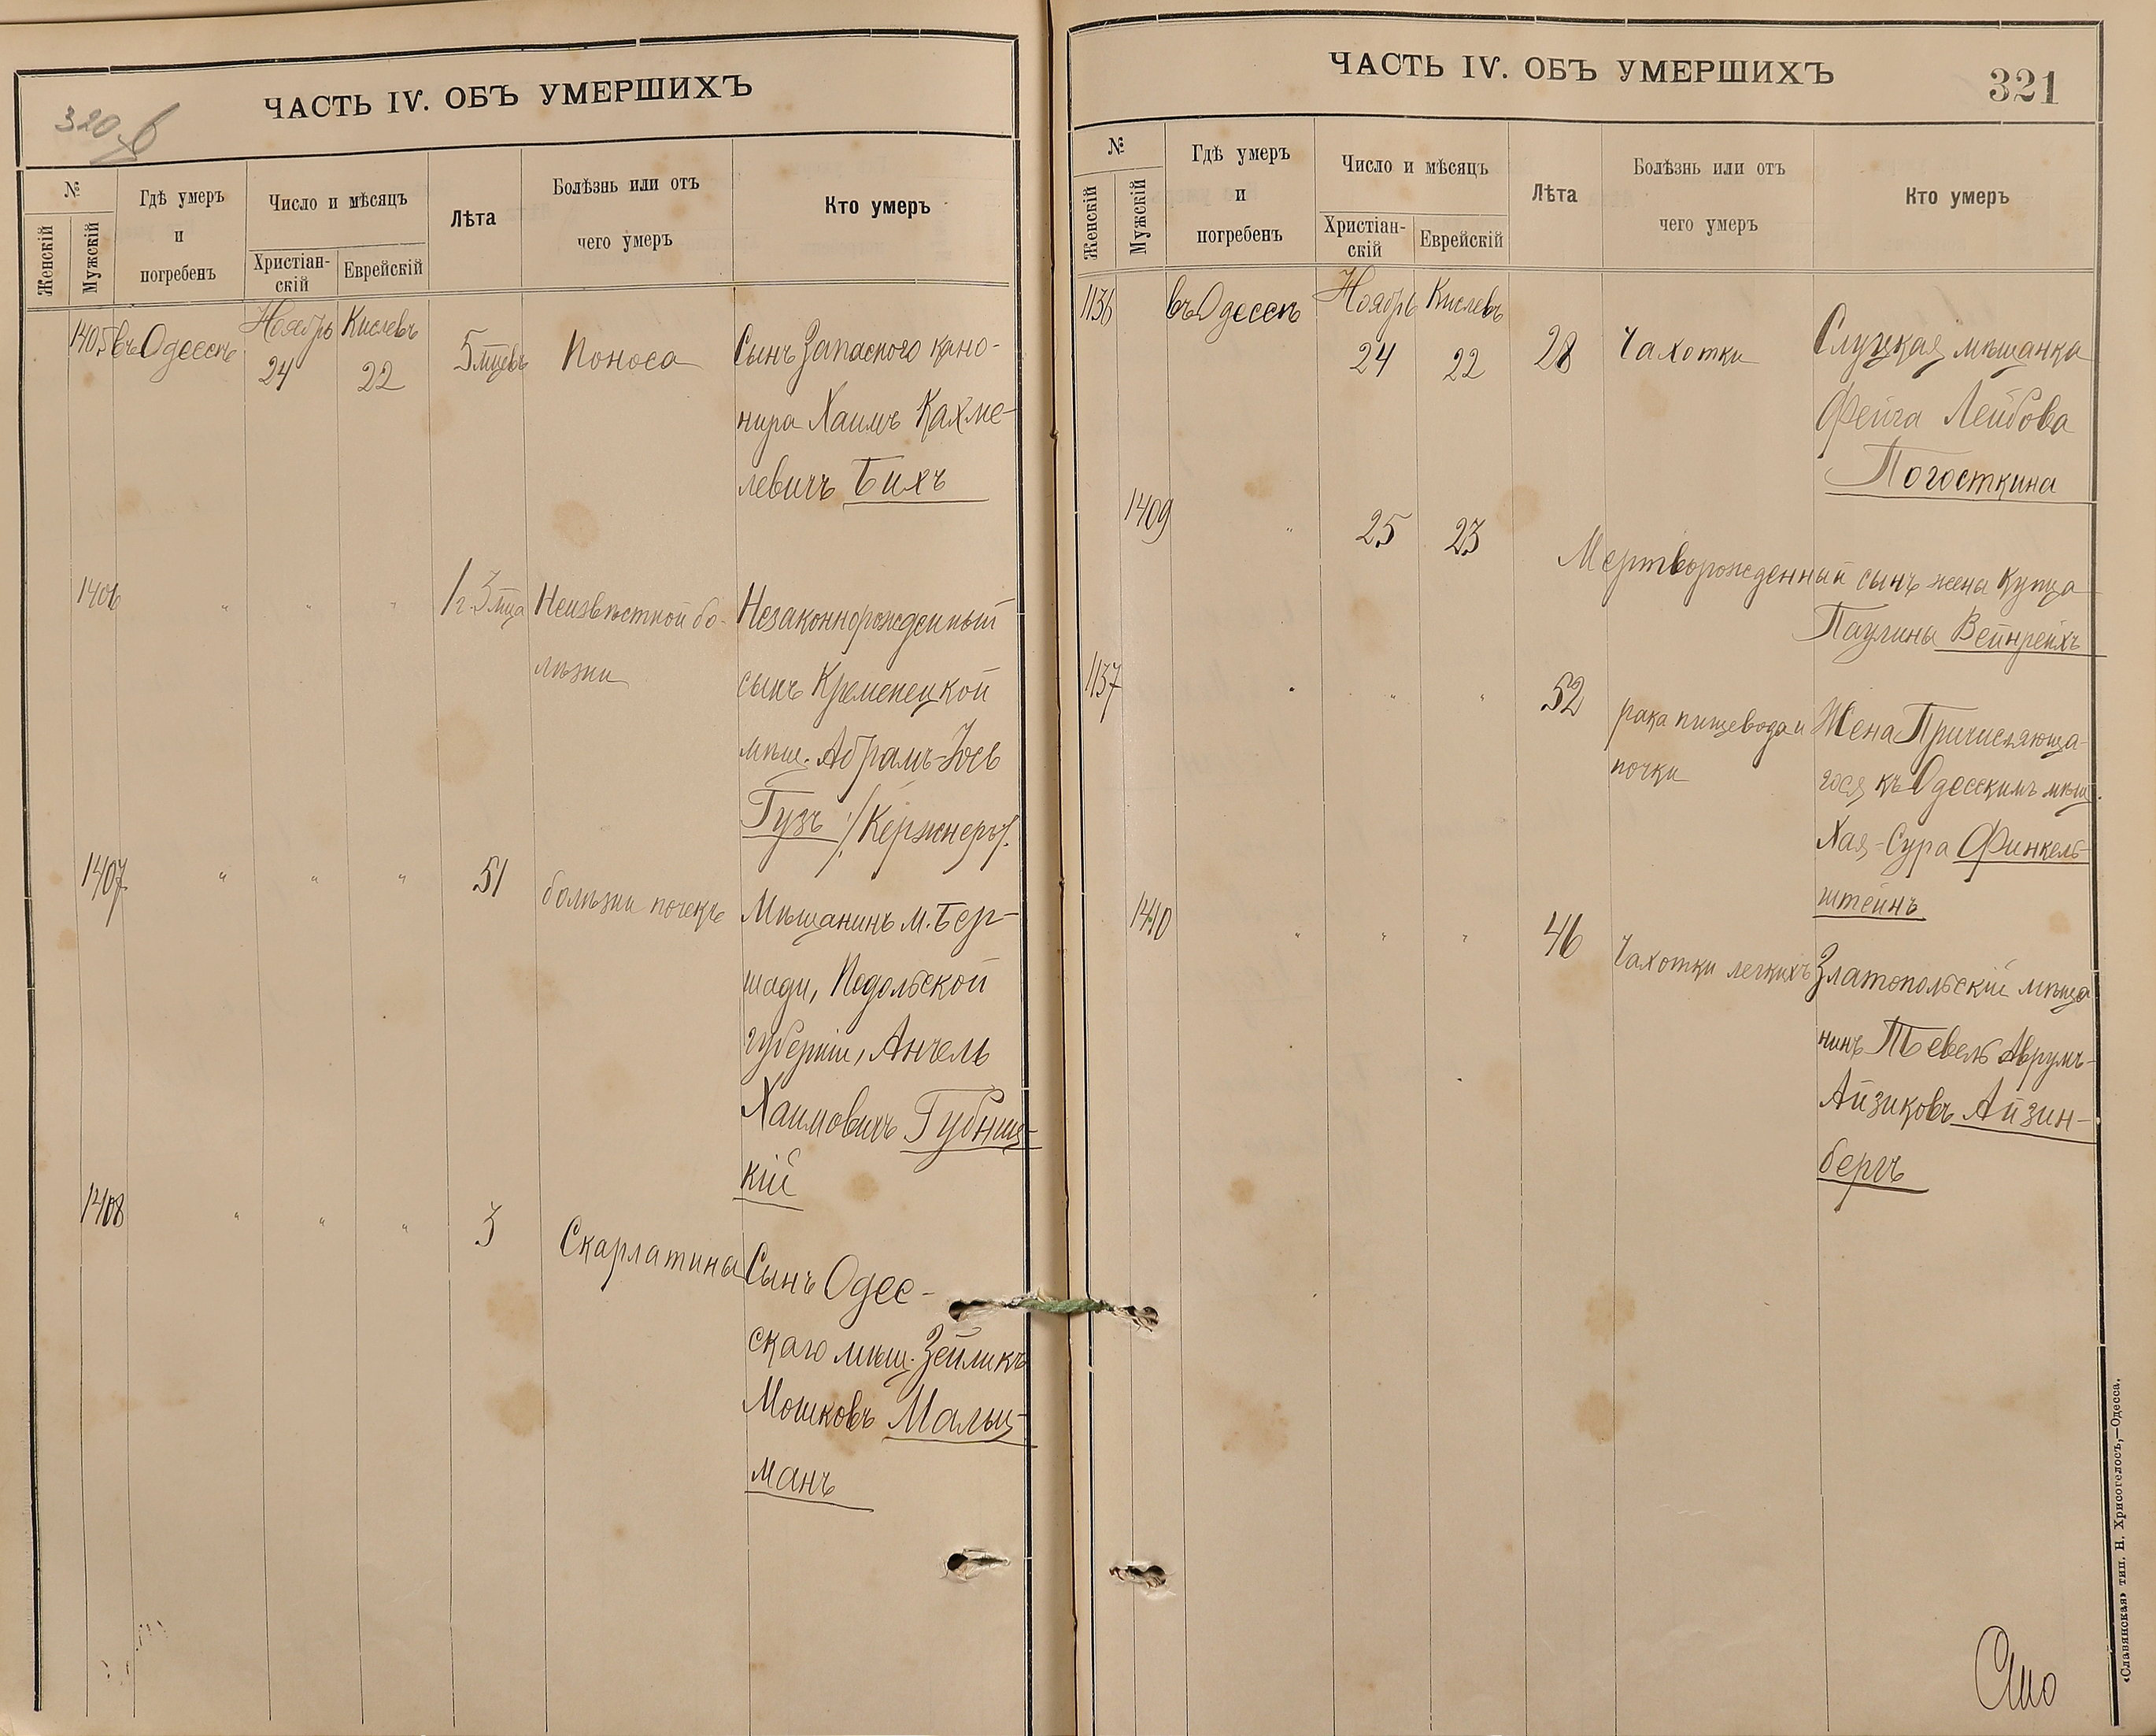 320 в
ЧАСТЬ IV. ОБЪ УМЕРШИХЪ
№
Женскій
Мужскій
Гдѣ умеръ
и
погребенъ
Число и мѣсяцъ
Христіан-
скій
Еврейскій
Лѣта
Болѣзнь или отъ
чего умеръ
Кто умеръ
1405 въ Одессѣ Ноябрь 24 Кислевъ 22 5 мцевъ Поноса Сынъ Запасного кано-
нира Хаимъ Кахме-
левичъ Бихъ
1406 " " " 1 г. 3 мца Неизвѣстной бо- Незаконнорожденный
лѣзни сынъ Кременецкой
мѣщ. Абрамъ-Іось
Гузъ /Кержнеръ/.
1407 " " " 51 болѣзни почекъ Мѣщанинъ м. Бер-
шади, Подольской
губерніи, Анчель
Хаимовичъ Губниц-
кій
1408 " " " 3 Скарлатина Сынъ Одес-
скаго мѣщ. Зейликъ
Мошковъ Мальц-
манъ
ЧАСТЬ IV. ОБЪ УМЕРШИХЪ
321
№
Женскій
Мужскій
Гдѣ умеръ
и
погребенъ
Число и мѣсяцъ
Христіан-
скій
Еврейскій
Лѣта
Болѣзнь или отъ
чего умеръ
Кто умеръ
1136 въ Одессѣ Ноябрь 24 Кислевъ 22 28 Чахотки Слуцкая мѣщанка
Фейга Лейбова
Погосткина
1409 " 25 23 Мертворожденный сынъ жена купца
Паулина Вейнрейхъ
1137 " " " 52 рака пищевода и Жена Причисляюща-
почки гося къ Одесскимъ мѣщ.
Хая-Сура Финкель-
штейнъ
1410 " " " 46 Чахотки легкихъ Златопольскій мѣща
нинъ Тевель Аврумъ-
Айзиковъ Айзин-
бергъ
«Славянская» тип. Н. Хрисогелосъ,—Одесса.